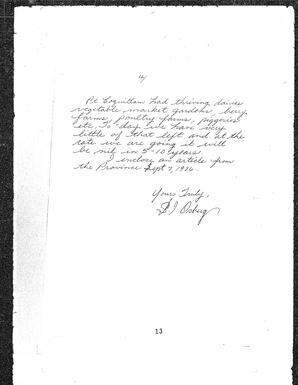 4/
Pt Coquitlam had thriving dairies
vegetable market gardens, berry
farms, poultry farms, piggeries
etc. To-day we have very
little of that left and at the
rate we are going it will
be nil in 5-10 years.
I inclose an article from
the Province Sept 7, 1976.
Yours Truly,
13